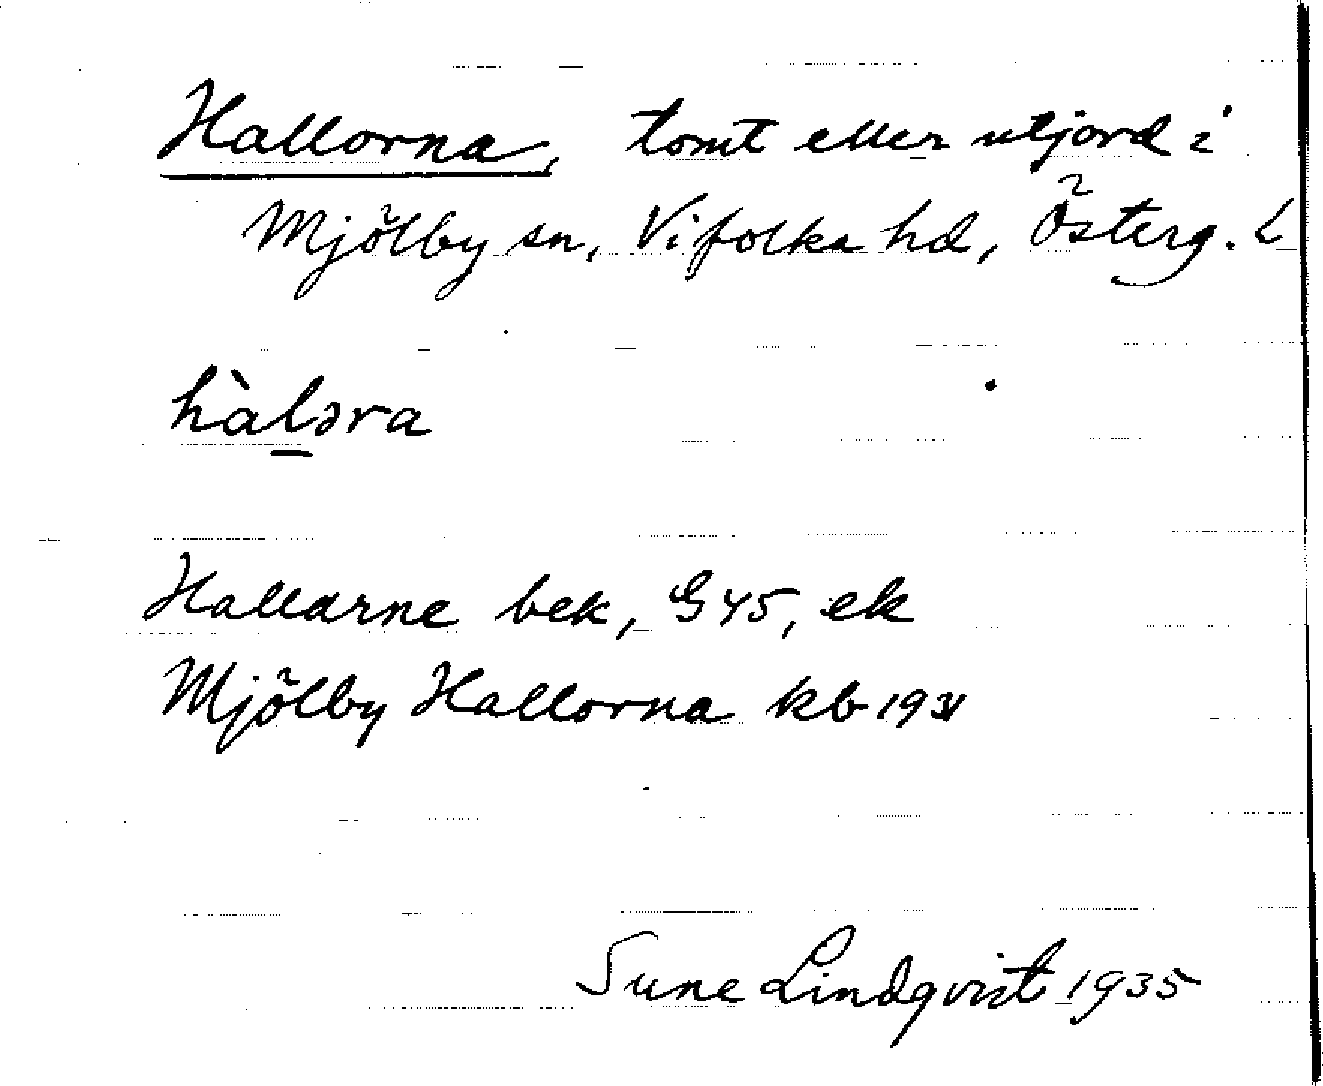 Hallorna, tomt eller utjord i
Mjölby sn, Vifolka hd, Österg. L
hàl̲ɔra
Hallarne bek, G45, ek
Mjölby Hallorna kb 1931
Sune Lindqvist 1935